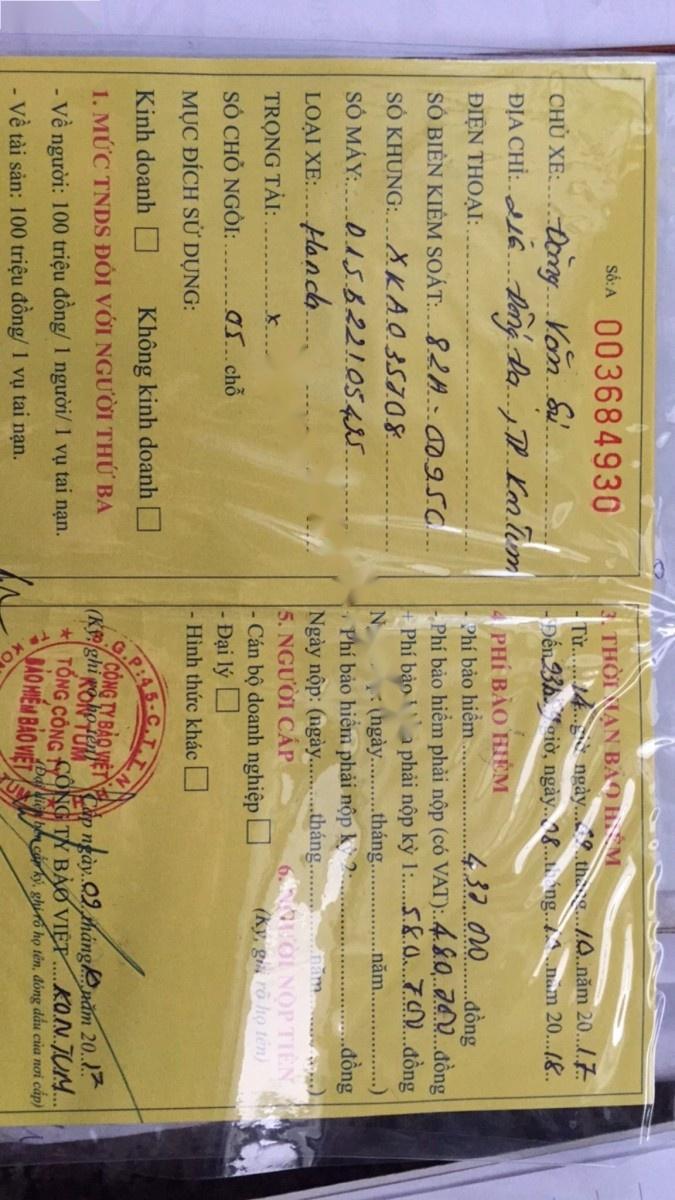 Số: A 003684930
CHỦ XE: Đồng Văn Sử
ĐỊA CHỈ: 216 Đống Đa, TP KonTum
ĐIỆN THOẠI:
SỐ BIỂN KIỂM SOÁT: 82A-00950
SỐ KHUNG: XKA035708
SỐ MÁY: 015B22105435
LOẠI XE: Honda
TRỌNG TẢI: x
SỐ CHỖ NGỒI: 05 chỗ
MỤC ĐÍCH SỬ DỤNG:
Kinh doanh □ Không kinh doanh □
1. MỨC TNDS ĐỐI VỚI NGƯỜI THỨ BA
- Về người: 100 triệu đồng/ 1 người/ 1 vụ tai nạn.
- Về tài sản: 100 triệu đồng/ 1 vụ tai nạn.
3. THỜI HẠN BẢO HIỂM
- Từ 14 giờ, ngày 09 tháng 10 năm 2017
- Đến giờ, ngày 08 tháng 10 năm 2018
4. PHÍ BẢO HIỂM
- Phí bảo hiểm 437 000 đồng
- Phí bảo hiểm phải nộp (có VAT): 480,700 đồng
+ Phí bảo phải nộp kỳ 1: 580.700 đồng
(ngày tháng năm )
+ Phí bảo hiểm phải nộp kỳ 2 đồng
Ngày nộp: (ngày tháng năm )
5. NGƯỜI CẤP
- Cán bộ doanh nghiệp □
- Đại lý □
- Hình thức khác □
6. NGƯỜI NỘP TIỀN
(Ký, ghi rõ họ tên)
(Ký, ghi rõ họ tên) Cấp ngày 09 tháng 10 năm 2017
CÔNG TY BẢO VIỆT KONTUM
(Đại diện cấp ký, ghi rõ họ tên, đóng dấu của nơi cấp)
G.P:45-C.T.T.N.H.H
CÔNG TY BẢO VIỆT
KON TUM
TỔNG CÔNG TY
BẢO HIỂM BẢO VIỆT